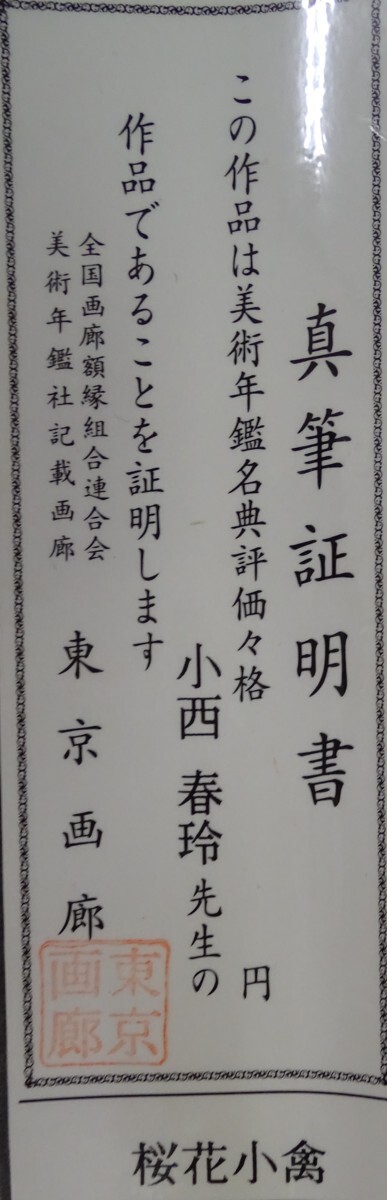 真筆証明書
この作品は美術年鑑名典評価々格 円
小西 春玲先生の
作品であることを証明します
全国画廊額縁組合連合会
美術年鑑社記載画廊
東京画廊
東京
画廊
桜花小禽